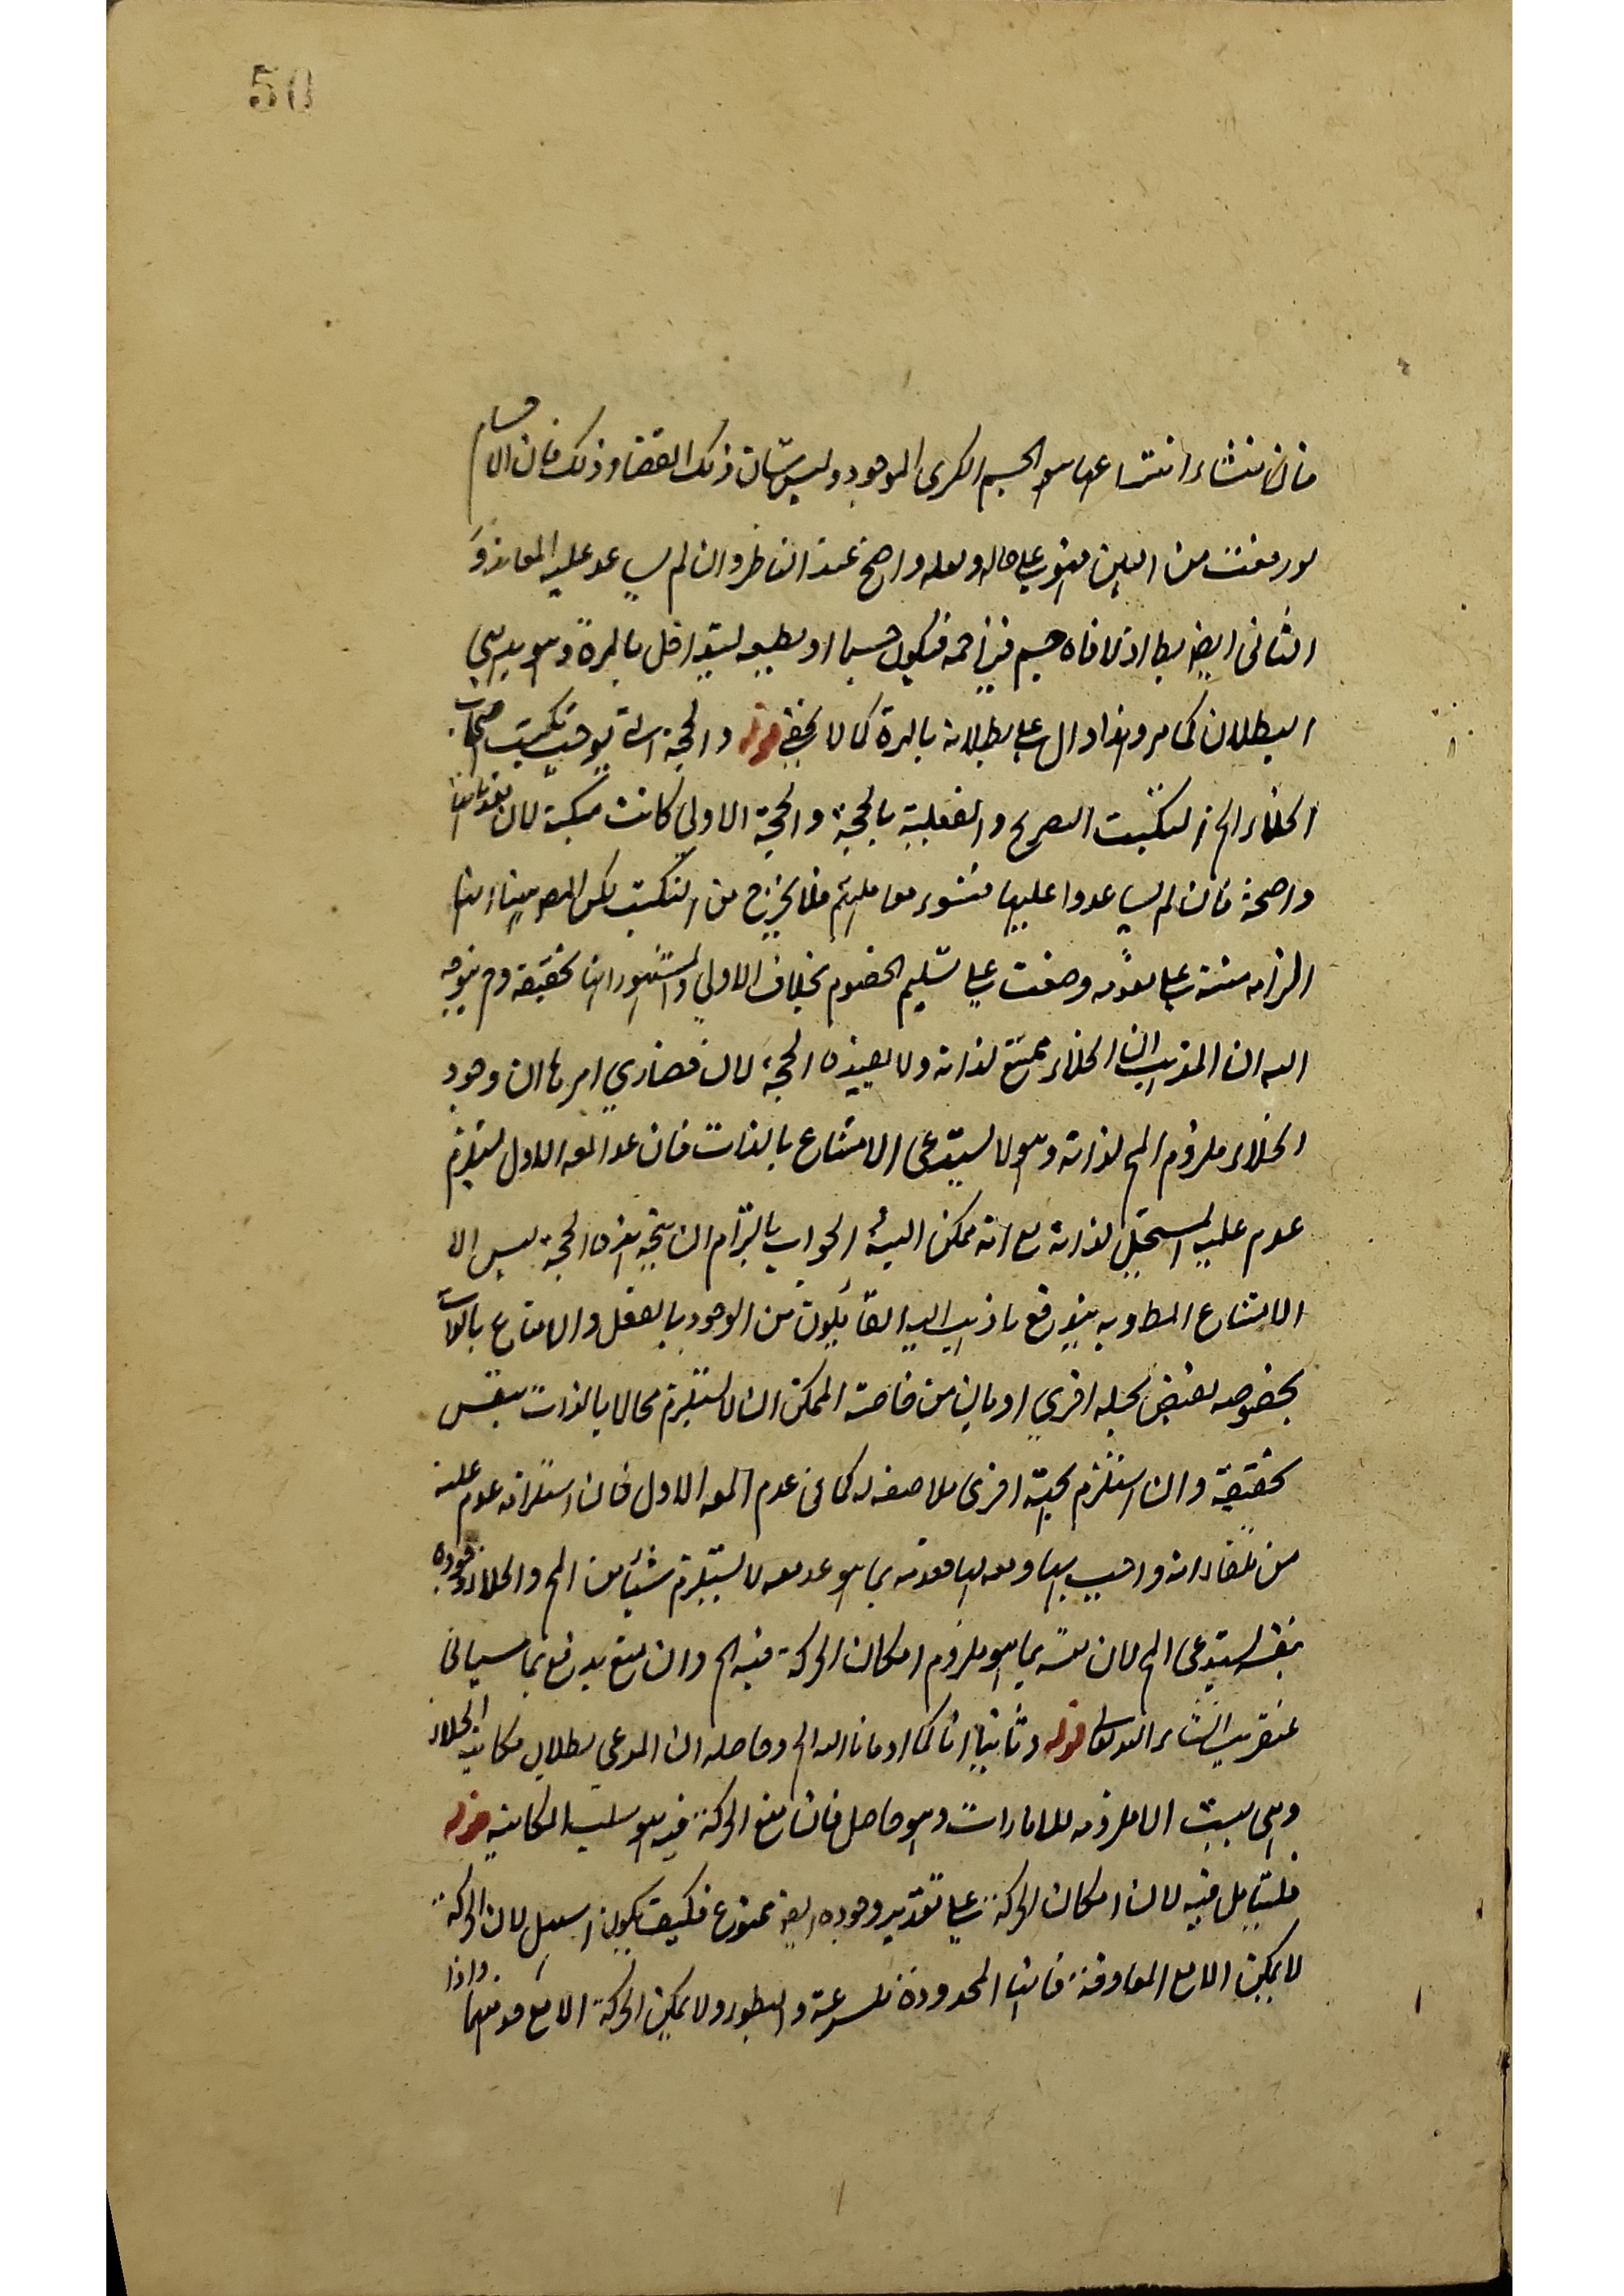 50
فان منشاء انتزاعها هو الجسم الكرى الموجود وليس شان ذلك الفضاء وذلك فان الاجسام
لو رفعت من البين فهو على حاله ولعله واضح عند الناظر وان لم يساعد عليه المعاند و
الثانى ايضا بط اذ لاقاه جسم فيزاحمه فيكون جسما او بطبيعه ليتداخل بالمرة وهو بديهى
البطلان كما مر وهذا دال على بطلانه بالمرة كما لا يخفى قوله والحجة الثانية توجب تبكيت اصحاب
الخلاء الخ التبكيت التصريح والغلبة بالحجة والحجة الاولى كانت مبكتة لان مقدماتها
واضحة فان لم يساعدوا عليها فبسوء معاملتهم فلا يخرج من التبكيت لكن المص بيننا انها
الزامه مبنية على مقدمه وضعت على تسليم الخصوم بخلاف الاولى والمشهور انها تحقيقة وح يتوجه
اليه ان المذهب ان الخلاء ممتنع لذاته ولا يفيده الحجة لان قصارى امرها ان وجود
الخلاء ملزوم المح لذاته وهو لا يستدعى الامتناع بالذات فان عدم المعه الاول يستلزم
عدم علته المستحيل لذاته مع انه ممكن اليه الجواب بالتزام ان نتيجة هذه الحجة ليس الا
الامتناع المط وبه يندفع ما ذهب اليه القائلون من الوجود بالفعل والامتناع بالذات
بخصوصه مقتضى بحجة اخرى او بان من خاصة الممكن ان لا يستلزم محالا بالذات بنفس
حقيقته وان استلزم بحيثية اخرى ملاصقه له كما فى عدم المعه الاول فان استلزامه عدم علته
من تلقاء انه واجب بها ومعه لها فعدمه بما هو عدمه لا يستلزم شيئا من المح والخلاء وجوده
بنفسه يستدعى المح لان نفسه بما هو ملزوم امكان الحركة فيه الخ وان منع يدفع بما سياتى
عنقريب انشاء الله تعالى قوله وثانيا انا كما اومانا اليه الخ وحاصله ان المدعى بطلان مكانية الخلاء
وهى ليست الا ملزومه للامارات وهو حاصل فان منع الحركة فيه هو سلب المكانية قوله
فليتامل فيه لان امكان الحركة على تقدير وجوده ايضا ممنوع فكيف يكون اسهل لان الحركة
لا يمكن الا مع المعاوقة فانها المحدودة للسرعة والبطوء ولا يمكن الحركة الا مع حد منهما واذا